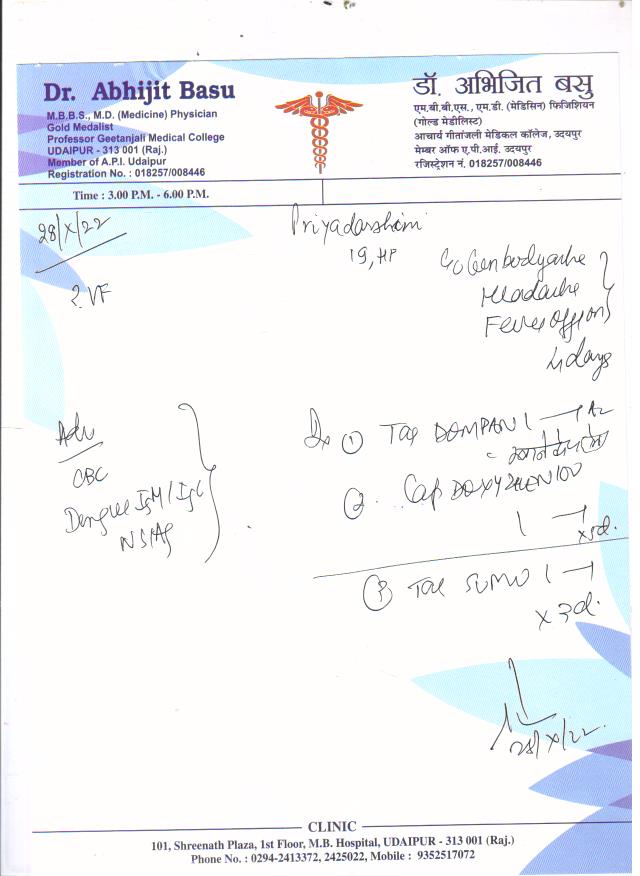 Dr. Abhijit Basu
M.B.B.S., M.D. (Medicine) Physician
Gold Medalist
Professor Geetanjali Medical College
UDAIPUR - 313 001 (Raj.)
Member of A.P.I. Udaipur
Registration No. : 018257/008446
डॉ. अभिजित बसु
एम.बी.बी.एस., एम.डी. (मेडिसिन) फिजिशियन
(गोल्ड मेडीलिस्ट)
आचार्य गीतांजली मेडिकल कॉलेज, उदयपुर
मेम्बर ऑफ ए.पी.आई. उदयपुर
रजिस्ट्रेशन नं. 018257/008446
Time : 3.00 P.M. - 6.00 P.M.
28/X/22
Priyadarshani
19,
? VF
c/o Gen bodyache
Headache
Fever off on
4 days
Adv
CBC
Dengue IgM / IgG
NS1Ag
Rx ① Tab DOMPAN 1
② Cap DOXY 100
1 x 5d.
③ Tab SUMO 1
x 3d.
28/X/22.
CLINIC
101, Shreenath Plaza, 1st Floor, M.B. Hospital, UDAIPUR - 313 001 (Raj.)
Phone No. : 0294-2413372, 2425022, Mobile : 9352517072